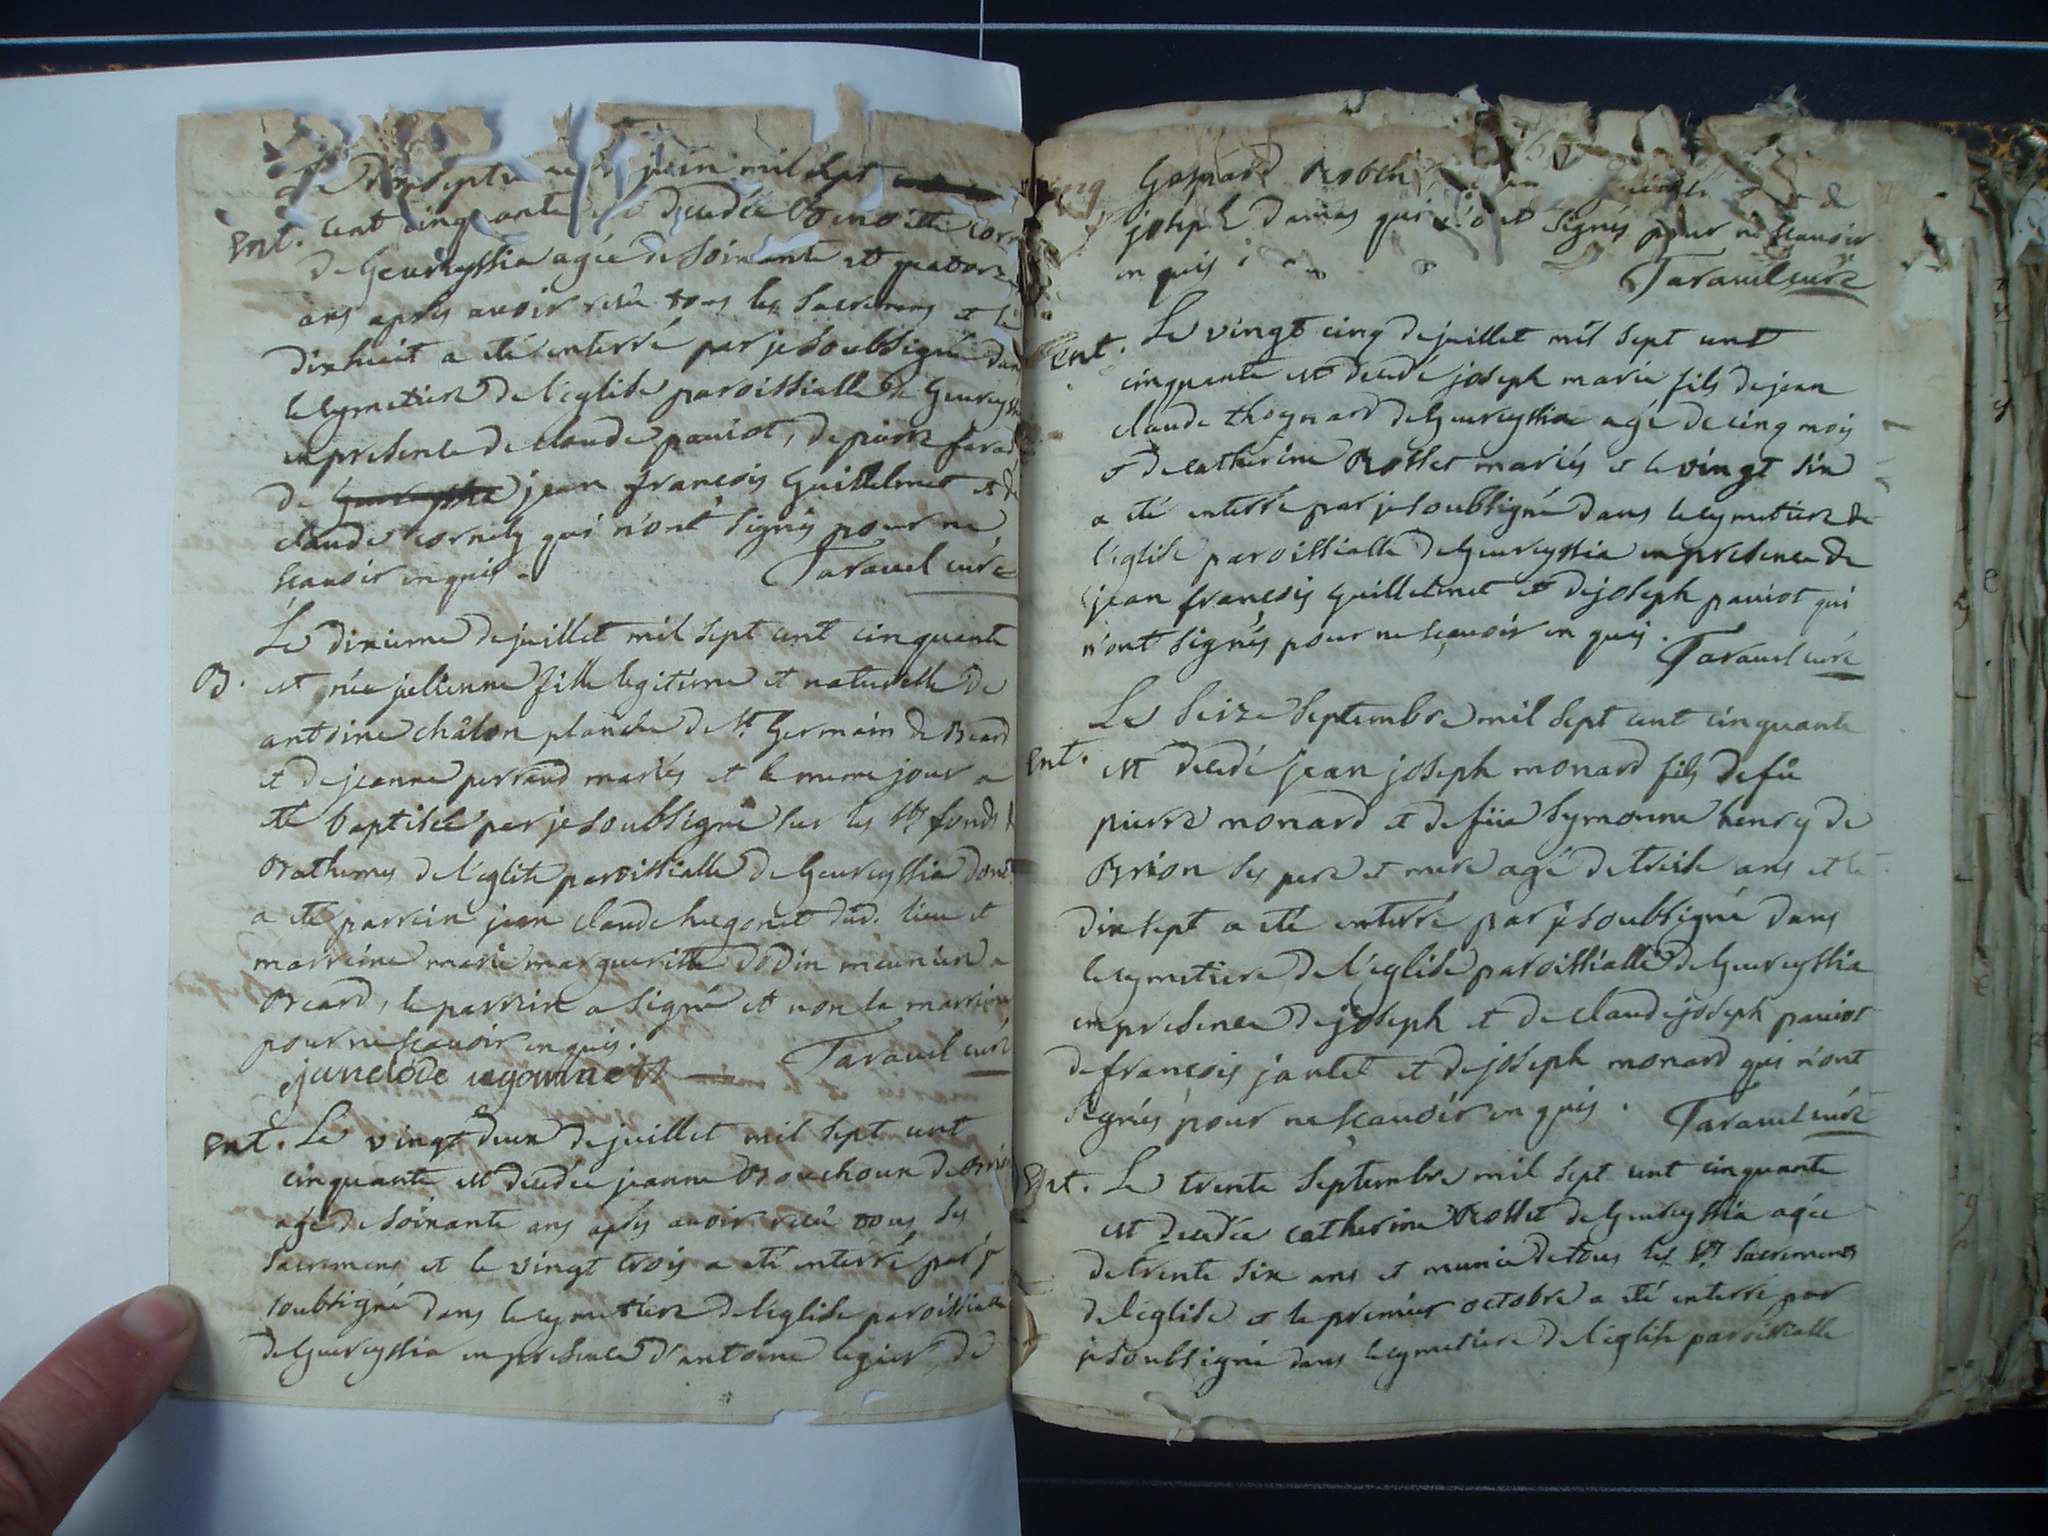 Le dixsept juin mil sept
Ent. cent cinquante est decedée Benoitte Corn
de Geureyssia agée de soixante et quatorz
ans apres avoir reçu tous les sacremens et le
dixhuit a été enterré par je soubsigné dans
le cymetiere de l'eglise paroissialle de Geureyssi
en presence de claude pauiot, de pierre
de Geureyssia jean françois Guillelmet et de
claude cornely qui n'ont signés pour ne
sçauoir en quis. Tarauel curé
Le dixieme de juillet mil sept cent cinquante
B. est née julienne fille legitime et naturelle de
antoine châlon planche de St Germain de Beard
et de jeanne perraud mariés et le meme jour a
été baptisée par je soubsigné sur les Sts fonds
Bathemes de l'eglise paroissialle de Geureyssia dont
a été parrein jean claude hugonet dud. lieu et
marreine marie margueritte dodin meuniere a
Beard, le parrein a signé et non la marreine
pour ne sçauoir en quis. Tarauel curé
janclode ugounnet
Ent. Le vingt deux de juillet mil sept cent
cinquante est decedée jeanne Bouchoux de Brion
agée de soixante ans apres auoir reçu tous les
sacremens et le vingt trois a été enterré par je
soubsigné dans le cymetiere de l'eglise paroissialle
de Geureyssia en presence d'antoine legier, de
Gaspard Robin
joseph damas qui n'ont signés pour ne sçauoir
en quis Tarauel curé
Ent. Le vingt cinq de juillet mil sept cent
cinquante est decedé joseph marie fils de jean
claude thognard de Geureyssia agé de cinq mois
et de catherine Rosset mariés et le vingt six
a été enterré par je soubsigné dans le cymetiere de
l'eglise paroissialle de Geureyssia en presence de
jean françois Guillelmet et de joseph pauiot qui
n'ont signés pour ne sçauoir en quis. Tarauel curé
Le seize septembre mil sept cent cinquante
Ent. est decedé jean joseph monard fils de fû
pierre monard et de fûe symonne henry de
Brion ses pere et mere agé de treise ans et le
dixsept a été enterré par je soubsigné dans
le cymetiere de l'eglise paroissialle de Geureyssia
en presence de joseph et de claude joseph pauiot
de françois jantet et de joseph monard qui n'ont
signés pour ne sçauoir en quis. Tarauel curé
Ent. Le trente septembre mil sept cent cinquante
est decedée catherine Rosset de Geureyssia agée
de trente six ans et munie de tous les Sts sacremens
de l'eglise et le premier octobre a été enterré par
je soubsigné dans le cymetiere de l'eglise paroissialle